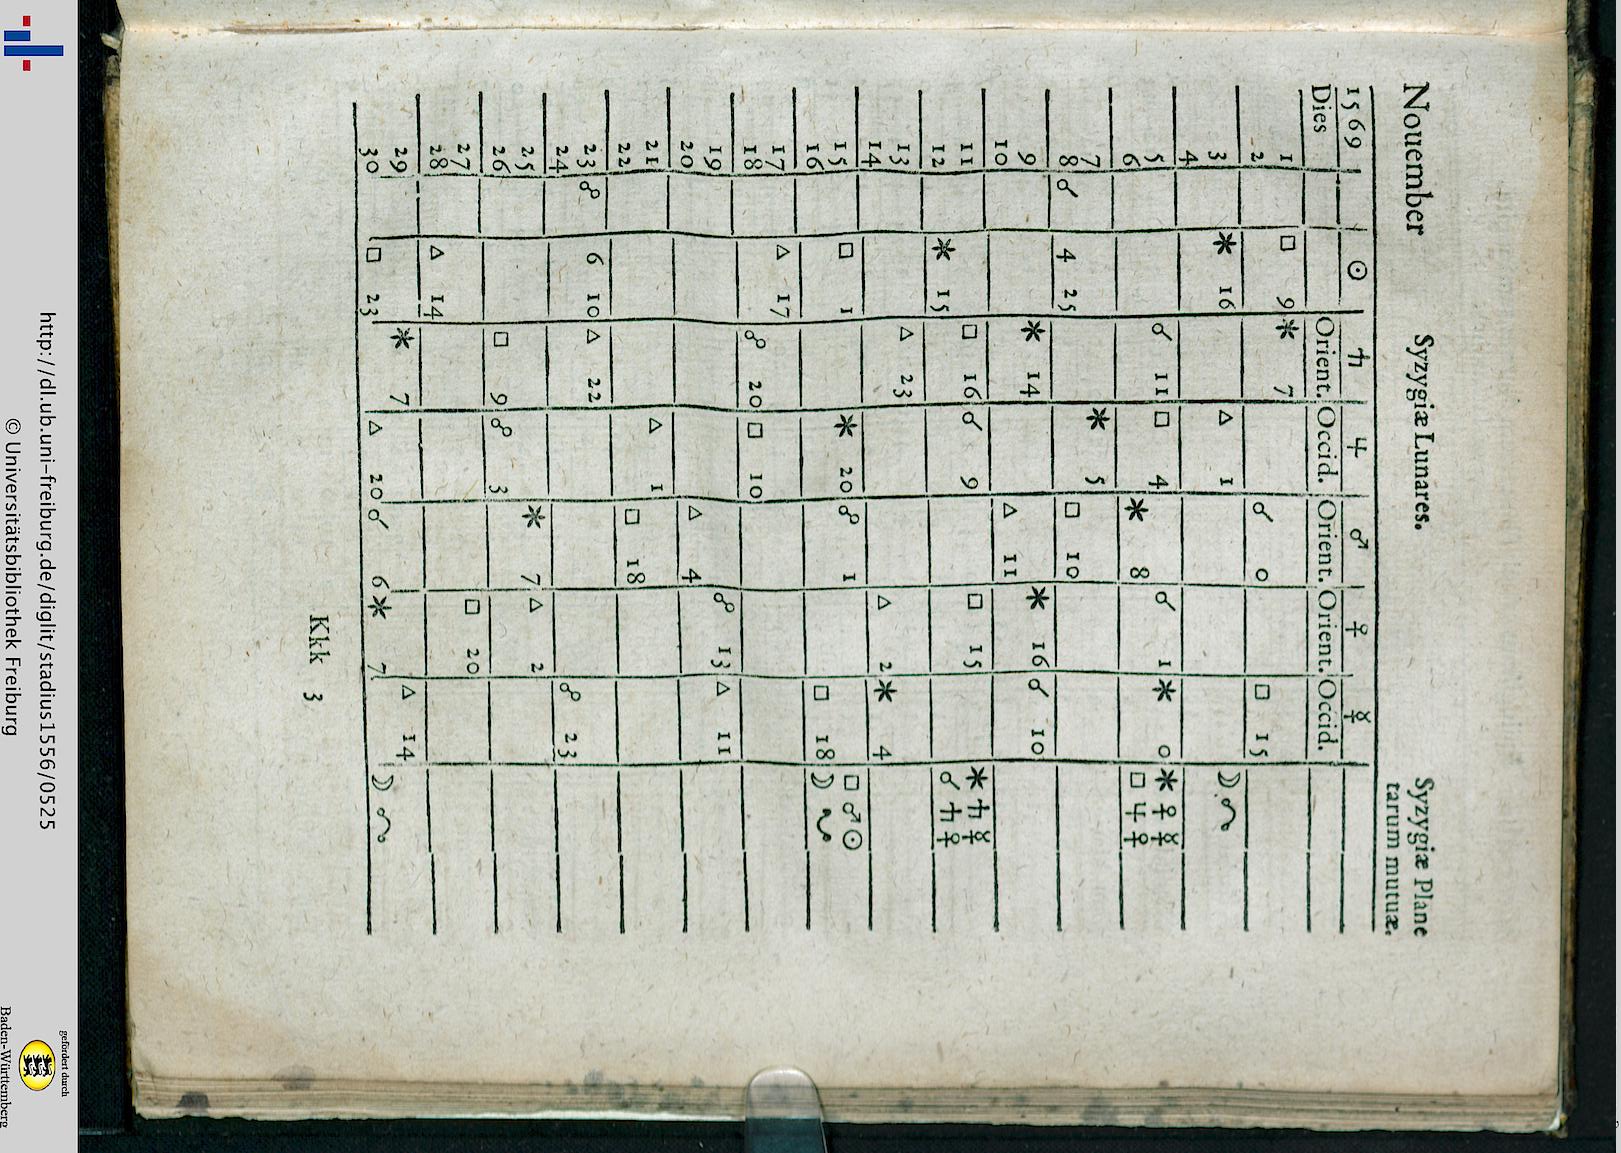 Nouember Syzygiæ Lunares. Syzygiæ Plane
tarum mutuæ.
1569 ☉ ♄ ♃ ♂ ♀ ☿
Dies Orient. Occid. Orient. Orient. Occid.
1 □ 9 ✱ 7
2 ☌ 0 □ 15
3 ✱ 16 △ 1 ☽ ☊
4
5 ☌ 11 □ 4 ☌ 1 ✱ 0 ✱ ♀ ☿
6 ✱ 8 □ ♃ ♀
7 ✱ 5
8 ☌ 4 25 □ 10
9 ✱ 14 ✱ 16 ☌ 10
10 △ 11
11 □ 16 ☌ 9 □ 15 ✱ ♄ ☿
12 ✱ 15 ☌ ♄ ♀
13 △ 23
14 △ 2 ✱ 4
15 □ 1 ✱ 20 ☍ 1 □ ♂ ☉
16 □ 18 ☽ ☋
17 △ 17
18 ☍ 20 □ 10
19 ☍ 13 △ 11
20 △ 4
21 △ 1
22 □ 18
23 ☍ 6 10 △ 22
24 ☍ 23
25 ✱ 7 △ 2
26 □ 9 ☍ 3
27 □ 20
28 △ 14
29 ✱ 7 △ 14
30 □ 23 △ 20 ☌ 6 ✱ 7 ☽ ☊
Kkk 3
http://dl.ub.uni-freiburg.de/diglit/stadius1556/0525
© Universitätsbibliothek Freiburg
gefördert durch
Baden-Württemberg